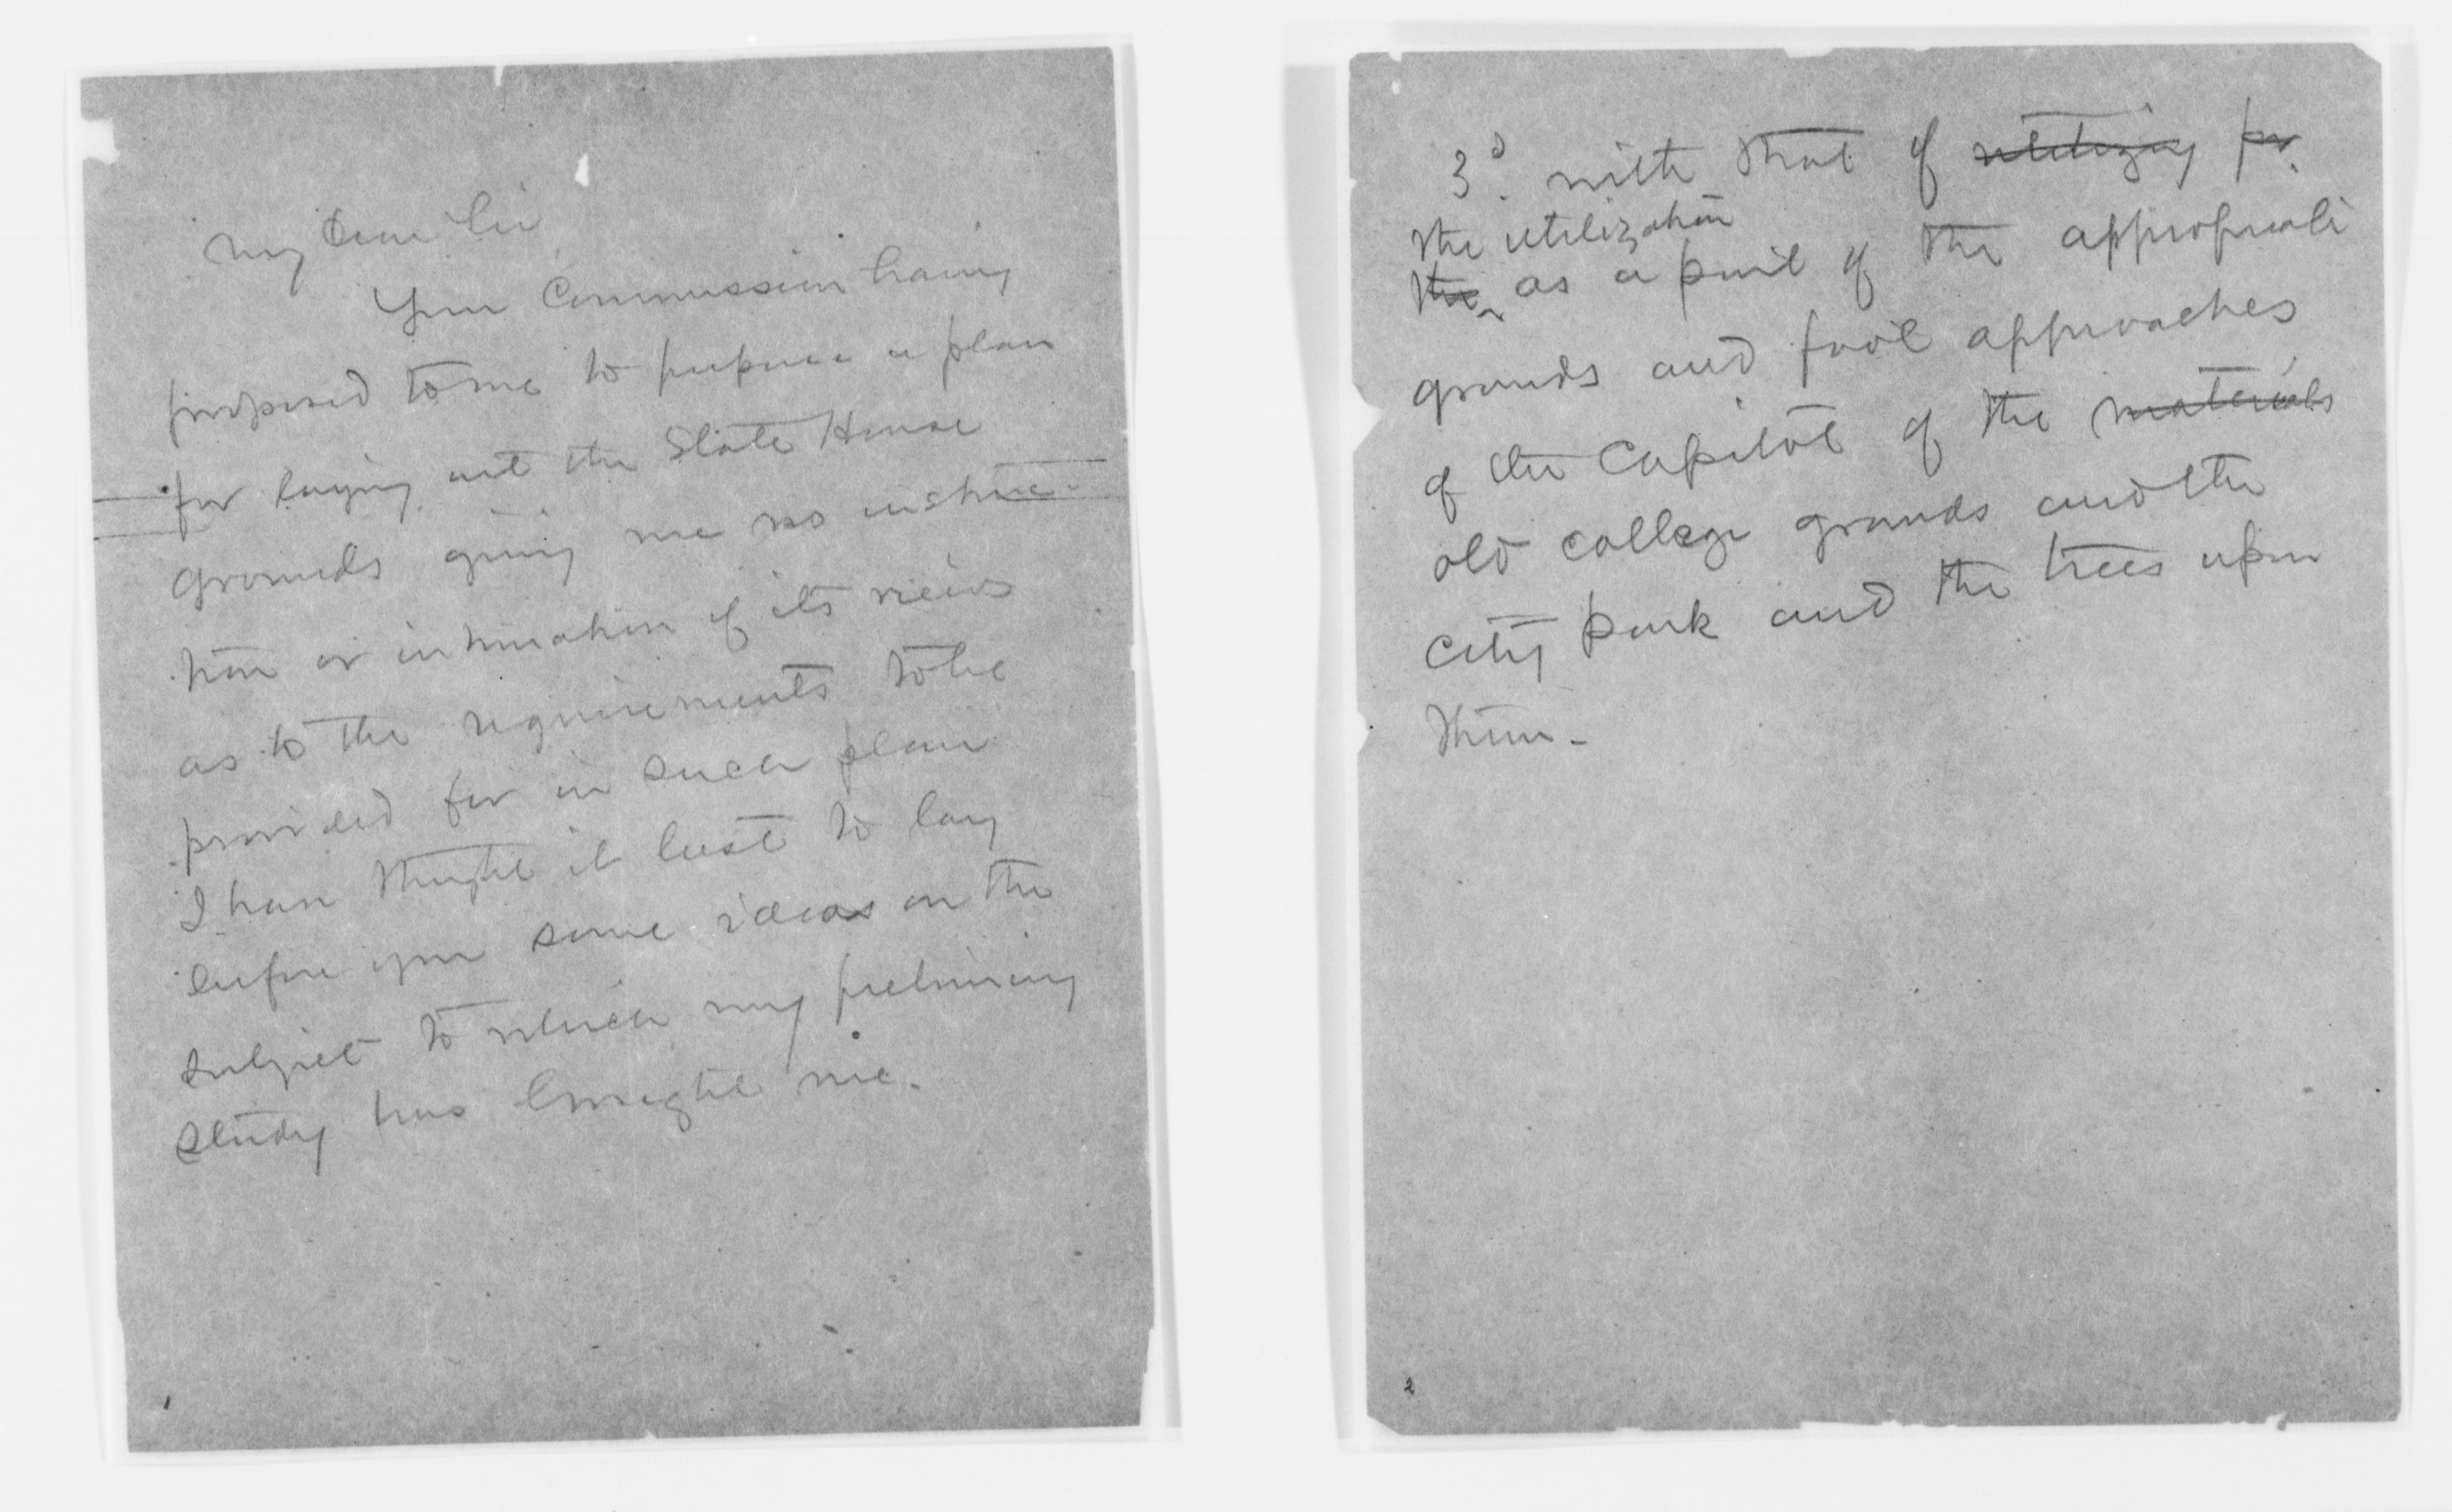 My Dear Sir
Your Commission having
proposed to me to prepare a plan
for laying out the State House
grounds giving me no instruc-
tion or intimation of its views
as to the requirements to be
provided for in such plan
I have thought it best to lay
before you some ideas on the
subject to which my preliminary
study has brought me.
1
3d. with that of utilizing for
the utilization
the as a part of the appropriate
grounds and foot approaches
of the Capitol of the materials
old college grounds and the
city park and the trees upon
them -
2